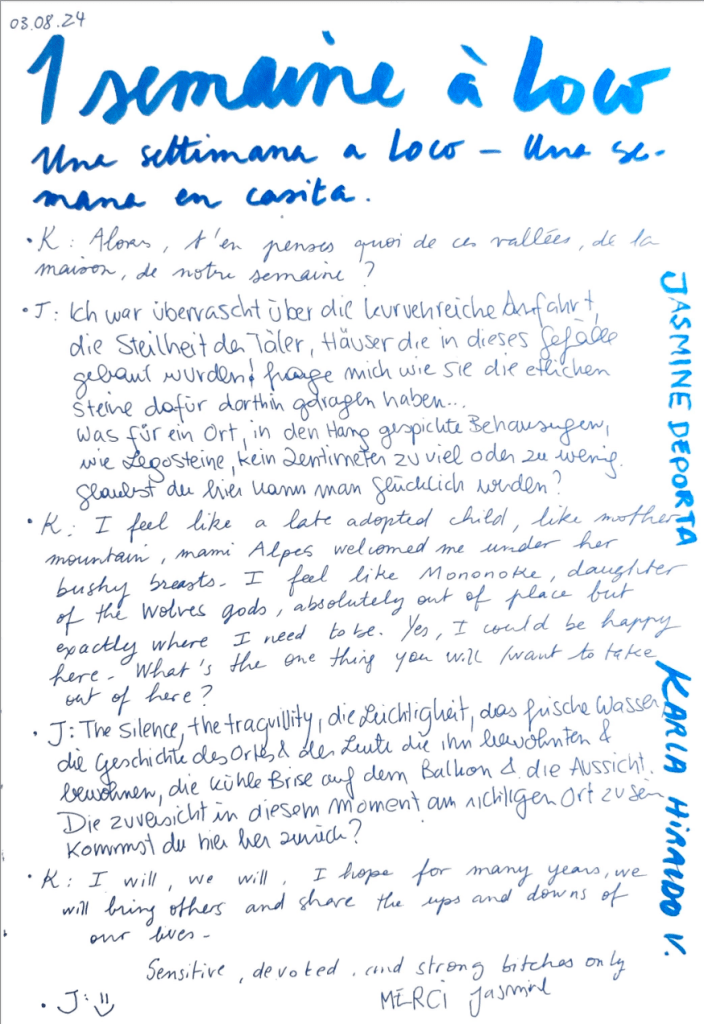 03.08.24
1 semaine à Loco
Una settimana a Loco – Una se-
mana en casita.
• K: Alors, t'en penses quoi de ces vallées, de la
maison, de notre semaine ?
• J: Ich war überrascht über die kurvenreiche Anfahrt,
die Steilheit der Täler, Häuser die in dieses Gefälle
gebaut wurden, frage mich wie sie die etlichen
Steine dafür dorthin getragen haben...
Was für ein Ort, in den Hang gespickte Behausungen,
wie Legosteine, kein Zentimeter zu viel oder zu wenig.
glaubst du hier kann man glücklich werden?
• K: I feel like a late adopted child, like mother
mountain, mami Alpes welcomed me under her
bushy breasts. I feel like Mononoke, daughter
of the Wolves gods, absolutely out of place but
exactly where I need to be. Yes, I could be happy
here – What's the one thing you will /want to take
out of here?
• J: The silence, the traquillity, die Leichtigkeit, das frische Wasser,
die Geschichte des Ortes & der Leute die ihn bewohnten &
bewohnen, die kühle Brise auf dem Balkon & die Aussicht.
Die zuversicht in diesem Moment am richtigen Ort zu sein
Kommst du hier her zurück?
• K: I will, we will. I hope for many years, we
will bring others and share the ups and downs of
our lives –
Sensitive, devoted, and strong bitches only
• J: :)
MERCi Jasmine
JASMINE DEPORTA
KARLA HIRALDO V.